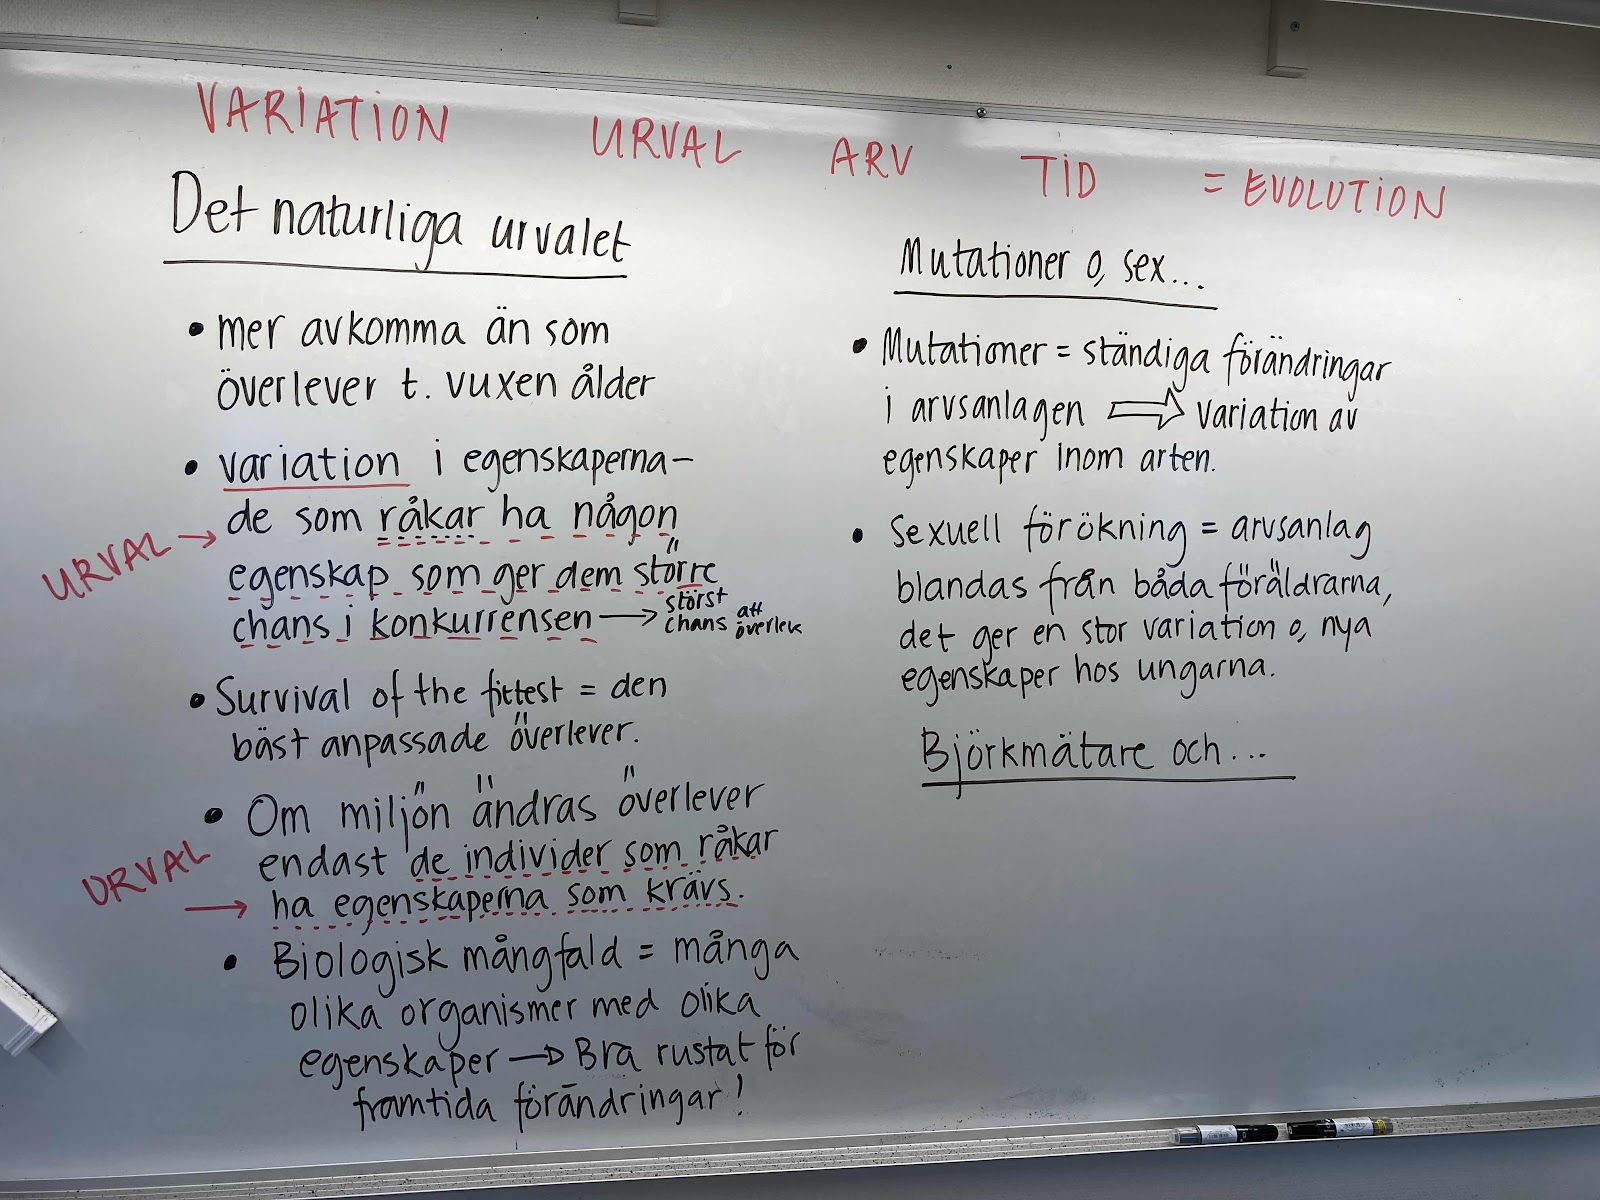 VARIATION URVAL ARV TID = EVOLUTION
Det naturliga urvalet
• mer avkomma än som
överlever t. vuxen ålder
• variation i egenskaperna–
de som råkar ha någon
URVAL →
egenskap som ger dem större
chans i konkurrensen → störst
chans att
överlev
• Survival of the fittest = den
bäst anpassade överlever.
• Om miljön ändras överlever
endast de individer som råkar
URVAL →
ha egenskaperna som krävs.
• Biologisk mångfald = många
olika organismer med olika
egenskaper → Bra rustat för
framtida förändringar!
Mutationer o, sex...
• Mutationer = ständiga förändringar
i arvsanlagen ⇒ variation av
egenskaper inom arten.
• Sexuell förökning = arvsanlag
blandas från båda föräldrarna,
det ger en stor variation o, nya
egenskaper hos ungarna.
Björkmätare och...